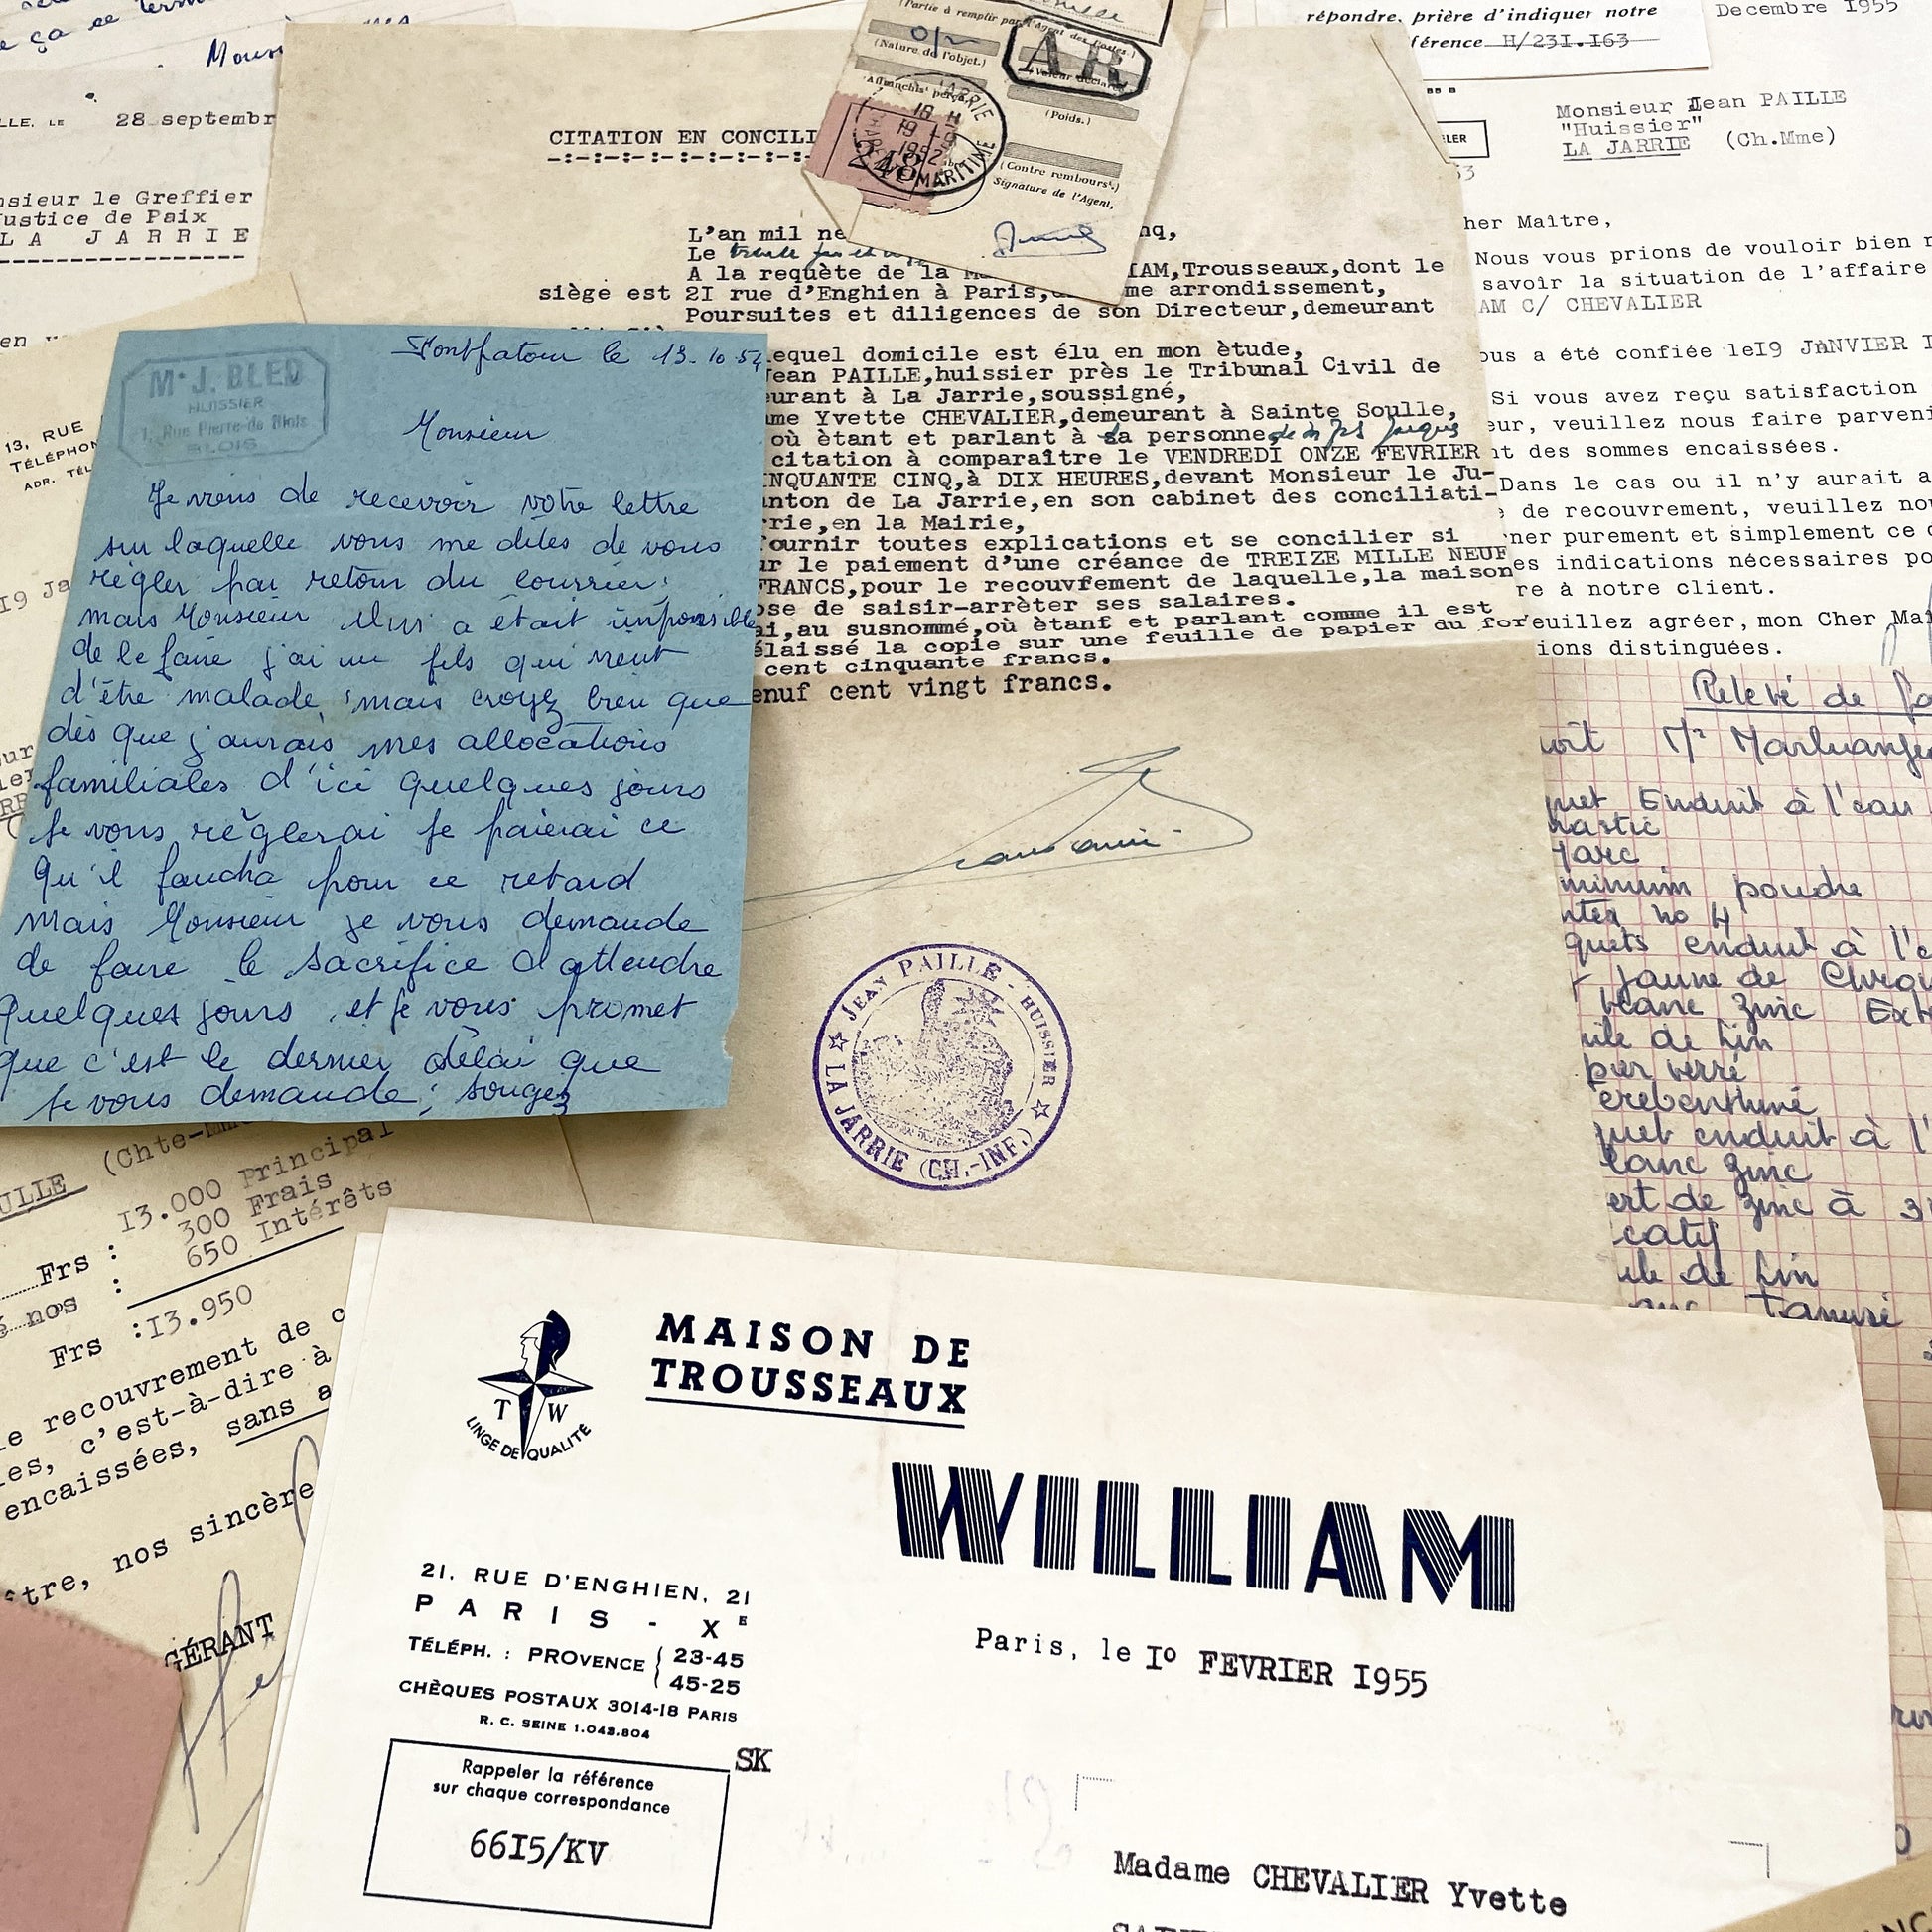 ça ce
28 septembr
nsieur le Greffier
ustice de Paix
L A   J A R R I E
13, RUE
TÉLÉPHON
ADR. TÉL
19 Ja
CITATION EN CONCILI
L'an mil ne
nq,
Le
A la requête de la
IAM,Trousseaux,dont le
siège est 2I rue d'Enghien à Paris,
me arrondissement,
Poursuites et diligences de son Directeur,demeurant
equel domicile est élu en mon ètude,
Jean PAILLE,huissier près le Tribunal Civil de
eurant à La Jarrie,soussigné,
me Yvette CHEVALIER,demeurant à Sainte Soulle,
où ètant et parlant à sa personne
citation à comparaître le VENDREDI ONZE FEVRIER
INQUANTE CINQ,à DIX HEURES,devant Monsieur le Ju-
anton de La Jarrie,en son cabinet des conciliati-
rrie,en la Mairie,
fournir toutes explications et se concilier si
ur le paiement d'une créance de TREIZE MILLE NEUF
FRANCS,pour le recouvrement de laquelle,la maison
ose de saisir-arrèter ses salaires.
ai,au susnommé,où ètant et parlant comme il est
élaissé la copie sur une feuille de papier du for
cent cinquante francs.
enuf cent vingt francs.
JEAN PAILLÉ - HUISSIER
LA JARRIE (CH.-INF.)
(Partie à remplir par l'Agent des Postes.)
(Nature de l'objet.)
AR
Valeur déclarée
Affranchis' perçu
(Poids.)
(Contre rembours'.)
Signature de l'Agent,
LA JARRIE
18 H
19 1
1952
248
MARITIME
répondre, prière d'indiquer notre
férence H/23I.I63
Decembre 1955
Monsieur Jean PAILLE
"Huissier"
LA JARRIE (Ch.Mme)
her Maître,
Nous vous prions de vouloir bien
savoir la situation de l'affaire
AM C/ CHEVALIER
ous a été confiée leI9 JANVIER I
Si vous avez reçu satisfaction
eur, veuillez nous faire parveni
nt des sommes encaissées.
Dans le cas ou il n'y aurait a
de recouvrement, veuillez nou
ner purement et simplement ce
es indications nécessaires po
re à notre client.
euillez agréer, mon Cher Maî
ions distinguées.
Mᵉ J. BLED
HUISSIER
1, Rue Pierre-de Blois
BLOIS
Fontpatour le 13.10.54
Monsieur
Je viens de recevoir votre lettre
sur laquelle vous me dites de vous
régler par retour du courrier,
mais Monsieur il m'a était impossible
de le faire j'ai un fils qui vient
d'être malade mais croyez bien que
dès que j'aurais mes allocations
familiales d'ici quelques jours
je vous règlerai je paierai ce
qu'il faudra pour ce retard
mais Monsieur je vous demande
de faire le sacrifice d'attendre
quelques jours et je vous promet
que c'est le dernier délai que
je vous demande; songez
Relevé de
oit Mr
uet Enduit à l'eau
mastic
minium poudre
no 4
quets enduit à l'e
jaune de Chro
blanc zinc Ext
uile de Lin
pier verré
uet enduit à l'
lanc zinc
ert de zinc à 3
catif
ile de Lin
ULLE (Chte-
I3.000 Principal
300 Frais
650 Intérêts
Frs :
nos :
Frs :I3.950
le recouvrement de c
les, c'est-à-dire à
encaissées, sans a
ître, nos sincère
GÉRANT
T W
LINGE DE QUALITÉ
MAISON DE
TROUSSEAUX
WILLIAM
21, RUE D'ENGHIEN, 21
PARIS - Xᴱ
TÉLÉPH. : PROVENCE { 23-45
45-25
CHÈQUES POSTAUX 3014-18 PARIS
R. C. SEINE 1.043.804
Paris, le I° FEVRIER I955
SK
Rappeler la référence
sur chaque correspondance
66I5/KV
Madame CHEVALIER Yvette